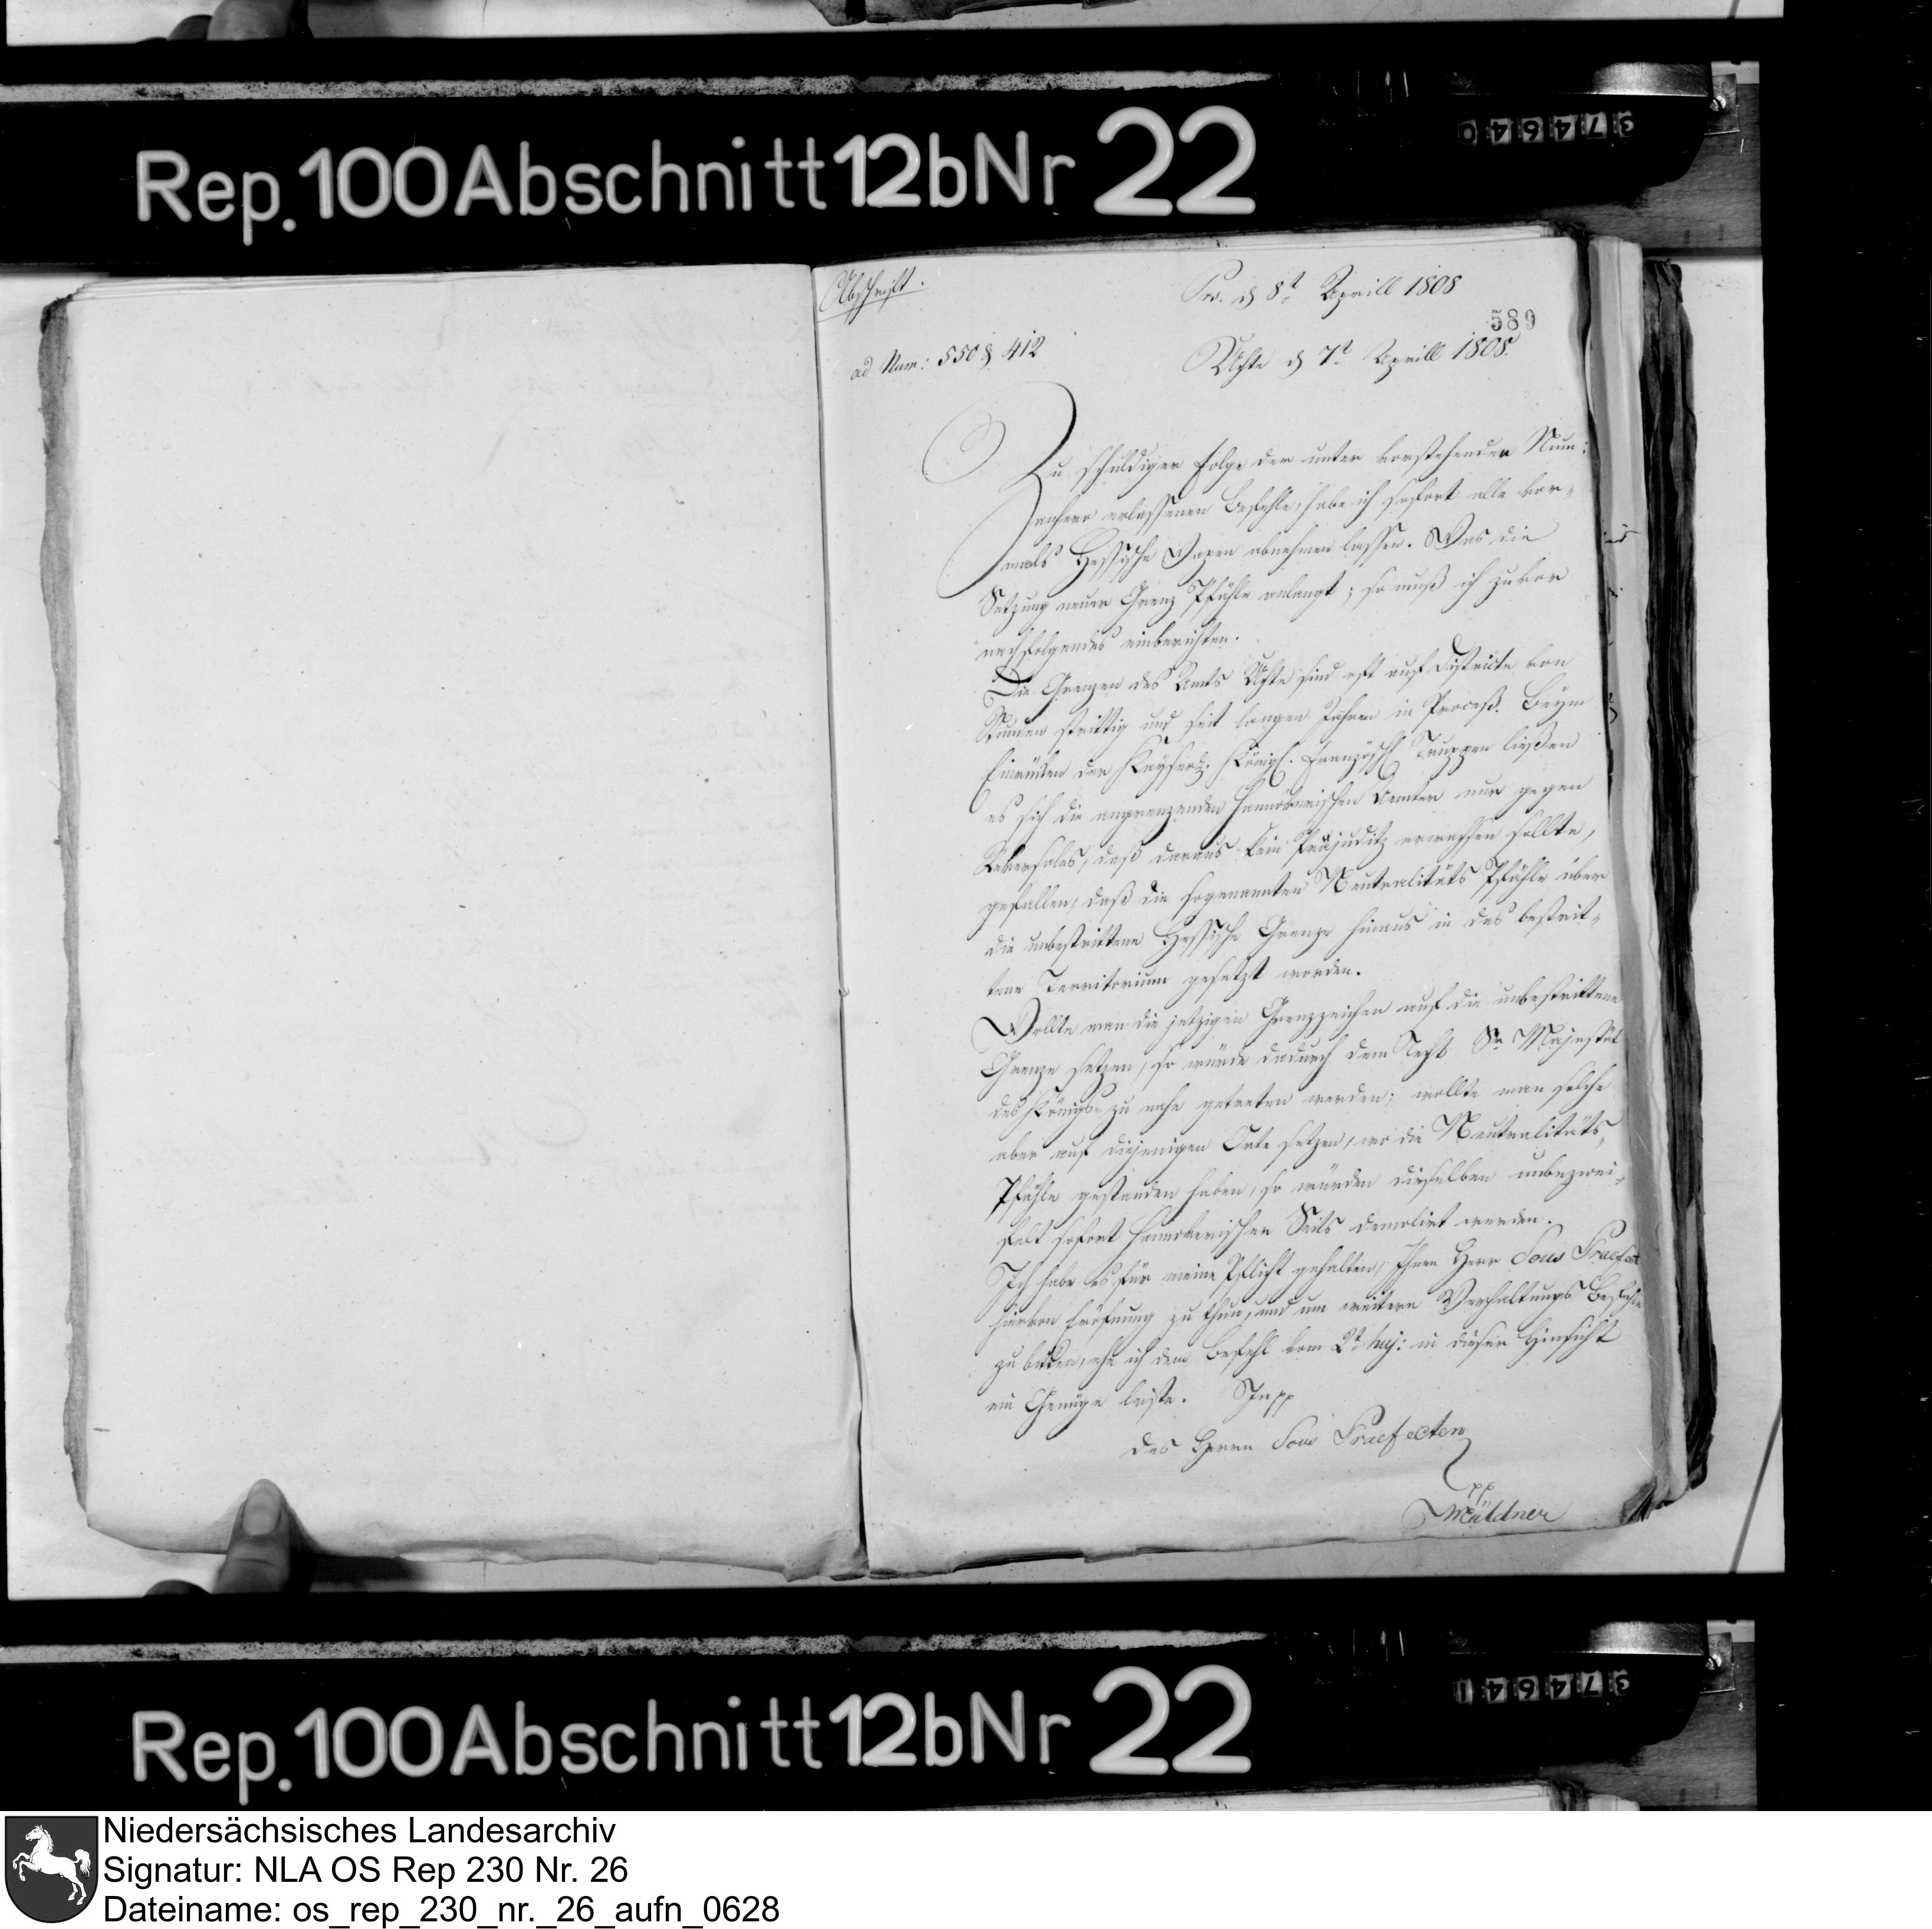 Rep. 100 Abschnitt 12b Nr 22
374640
Abschrift.
Pr. d 8t Aprill 1808
589
ad Num: 550 & 412
Uchte d 7t Aprill 1808.
Zu schuldiger Folge der unter vorstehender Num:
anhero erlassenen Befehle, habe ich sofort alle vor-
mals Hessische Wapen abnehmen lassen. Was die
Setzung neuer Grenz Pfähle anlangt; so muß ich zuvor
nachfolgendes einberichten.
Die Grenzen des Amts Uchte sind oft auf Districte von
Stunden streittig und seit langen Jahren in Proceß. Beym
Einrücken der Kayserl. Königl. Französch. Truppen ließen
es sich die angrenzenden Hannöverischen Aemter nur gegen
Reversales, daß daraus kein Präjuditz erwachsen sollte,
gefallen, daß die sogenannten Neutralitäts Pfähle über
die unbestrittene Hessische Grenze hinaus in das bestrit-
tene Territorium gesetzt worden.
Wollte man die jetzigen Grenzzeichen auf die unbestrittene
Grenze setzen, so würde dadurch dem Recht Sr. Majestät
des Königs zu nahe getreten werden; wollte man solche
aber auf diejenigen Orte setzen, wo die Neutralitäts-
Pfähle gestanden haben, so würden dieselben unbezwei-
felt sofort Hannoverischer Seits demolirt werden.
Ich habe es für meine Pflicht gehalten, Ihnen Herr Sous Praefect
hiervon Eröfnung zu thun, und um weitere Verhaltungs Befehle
zu bitten, ehe ich dem Befehl vom 2t huj: in dieser Hinsicht
ein Genüge leiste.
des Herrn Sous Praefecten
pp
Müldner
Rep. 100 Abschnitt 12b Nr 22
374641
Niedersächsisches Landesarchiv
Signatur: NLA OS Rep 230 Nr. 26
Dateiname: os_rep_230_nr._26_aufn_0628